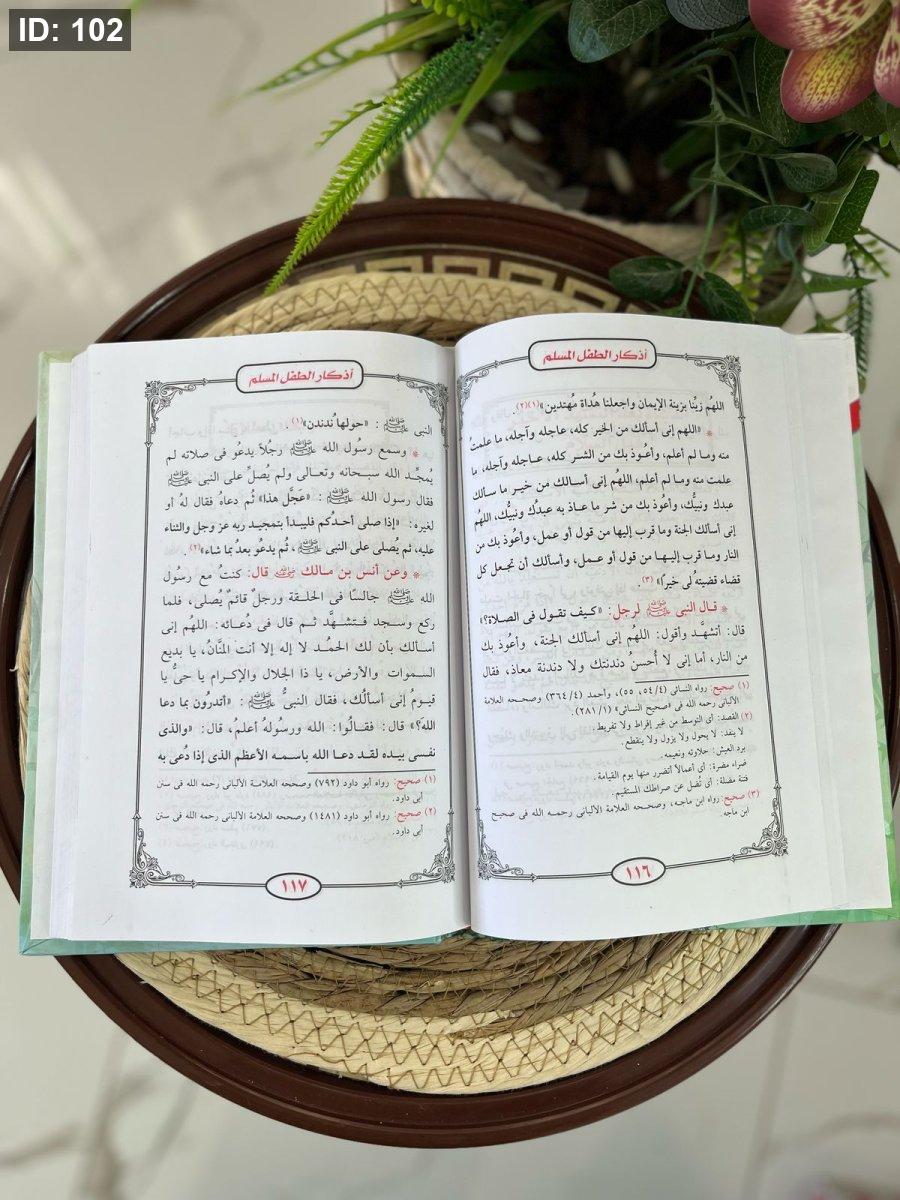 ID: 102
أذكار الطفل المسلم
اللهُم زيِّنا بزينة الإيمان واجعلنا هُداة مُهتدين»(١)(٢).
* «اللهم إنى أسالك من الخير كله، عاجله وآجله، ما علمتُ
منه وما لم أعلم، وأعُوذ بك من الشر كله، عاجله وآجله، ما
علمت منه وما لم أعلم، اللهُم إنى أسالك من خير ما سالك
عبدك ونبيُّك، وأعُوذ بك من شر ما عاذ به عبدُك ونبيُّك، اللهُم
إنى أسألك الجنة وما قرب إليها من قول أو عمل، وأعُوذ بك من
النار وما قرب إليها من قول أو عمل، وأسألك أن تجعل كل
قضاء قضيتهُ لى خيرًا» (٣).
* قال النبى ﷺ لرجل: «كيف تقول فى الصلاة؟»
قال: أتشهَّد وأقول: اللهُم إنى أسألك الجنة، وأعُوذ بك
من النار، أما إنى لا أُحسنُ دندنتك ولا دندنة معاذ، فقال
(١) صحيح: رواه النسائى (٥٤/٤، ٥٥)، وأحمد (٣٦٤/٤) وصححه العلامة
الألبانى رحمه الله فى «صحيح النسائى» (٢٨١/١).
(٢) القصد: أى التوسط من غير إفراط ولا تفريط.
لا ينفد: لا يحول ولا يزول ولا ينقطع.
برد العيش: حلاوته ونعيمه.
ضراء مضرة: أى أعمالاً أتضرر منها يوم القيامة.
فتنة مضلة: أى تُضل عن صراطك المستقيم.
(٣) صحيح: رواه ابن ماجه، وصححه العلامة الألبانى رحمه الله فى صحيح
ابن ماجه.
١١٦
أذكار الطفل المسلم
النبى ﷺ : «حولها نُدندن»(١).
* وسمع رسُول الله ﷺ رجُلاً يدعُو فى صلاته لم
يُمجِّد الله سبحانه وتعالى ولم يُصلِّ على النبى ﷺ
فقال رسول الله ﷺ : «عَجَّل هذا» ثُم دعاهُ فقال لهُ أو
لغيره: «إذا صلى أحدُكم فليبدأ بتمجيد ربه عز وجل والثناء
عليه، ثم يُصلى على النبى ﷺ، ثُم يدعُو بعدُ بما شاء»(٢).
* وعن أنس بن مالك رضي الله عنه قال: كنتُ مع رسُول
الله ﷺ جالسًا فى الحلقة ورجلٌ قائمٌ يُصلى، فلما
ركع وسجد فتشهَّد ثم قال فى دُعائه: اللهُم إنى
أسألك بأن لك الحمُد لا إله إلا أنت المنَّانُ، يا بديع
السموات والأرض، يا ذا الجلال والإكرام يا حىُّ يا
قيومُ إنى أسألُك، فقال النبىُّ ﷺ: «أتدرُونَ بما دعا
الله؟» قال: فقالُوا: الله ورسُولهُ أعلمُ، قال: «والذى
نفسى بيده لقد دعا الله باسمه الأعظم الذى إذا دُعى به
(١) صحيح: رواه أبو داود (٧٩٢) وصححه العلامة الألبانى رحمه الله فى سنن
أبى داود.
(٢) صحيح: رواه أبو داود (١٤٨١) وصححه العلامة الألبانى رحمه الله فى سنن
أبى داود.
١١٧